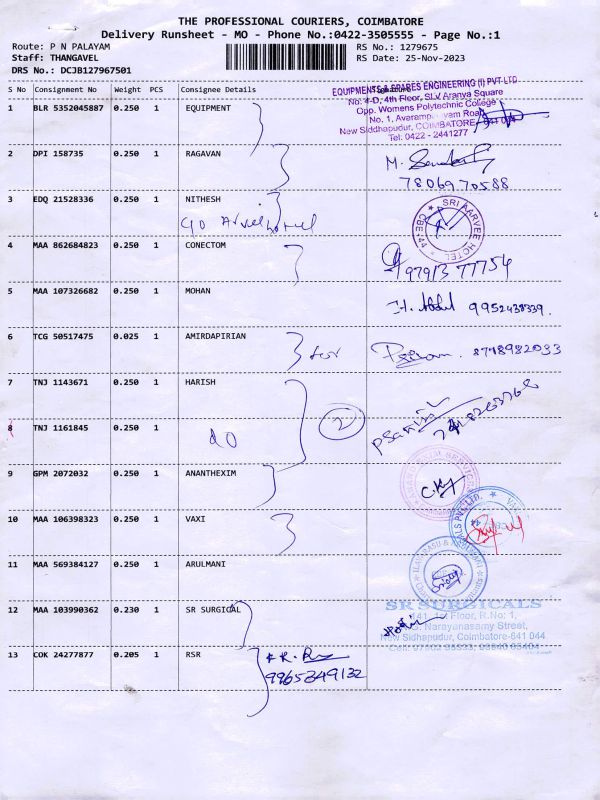 THE PROFESSIONAL COURIERS, COIMBATORE
Delivery Runsheet - MO - Phone No.:0422-3505555 - Page No.:1
Route: P N PALAYAM
RS No.: 1279675
Staff: THANGAVEL
RS Date: 25-Nov-2023
DRS No.: DCJB127967501
S No Consignment No Weight PCS Consignee Details
EQUIPMENTS & SPARES ENGINEERING (I) PVT LTD
No: 4-D, 4th Floor, SLV Aranya Square
Opp. Womens Polytechnic College
No. 1, Road
New Siddhapudur, COIMBATORE
Tel: 0422 - 2441277
1 BLR 5352045887 0.250 1 EQUIPMENT
2 DPI 158735 0.250 1 RAGAVAN
M.
7806970588
3 EDQ 21528336 0.250 1 NITHESH
C/O
SRI AARVEE HOTEL
CBE-44
4 MAA 862684823 0.250 1 CONECTOM
9791377754
5 MAA 107326682 0.250 1 MOHAN
9952438339.
6 TCG 50517475 0.025 1 AMIRDAPIRIAN
8778982033
7 TNJ 1143671 0.250 1 HARISH
8 TNJ 1161845 0.250 1
do
2
9 GPM 2072032 0.250 1 ANANTHEXIM
10 MAA 106398323 0.250 1 VAXI
11 MAA 569384127 0.250 1 ARULMANI
12 MAA 103990362 0.230 1 SR SURGICAL
SR SURGICALS
141, 1st Floor, R.No: 1,
Narayanasamy Street,
New Sidhapudur, Coimbatore-641 044
13 COK 24277877 0.205 1 RSR
9965349132